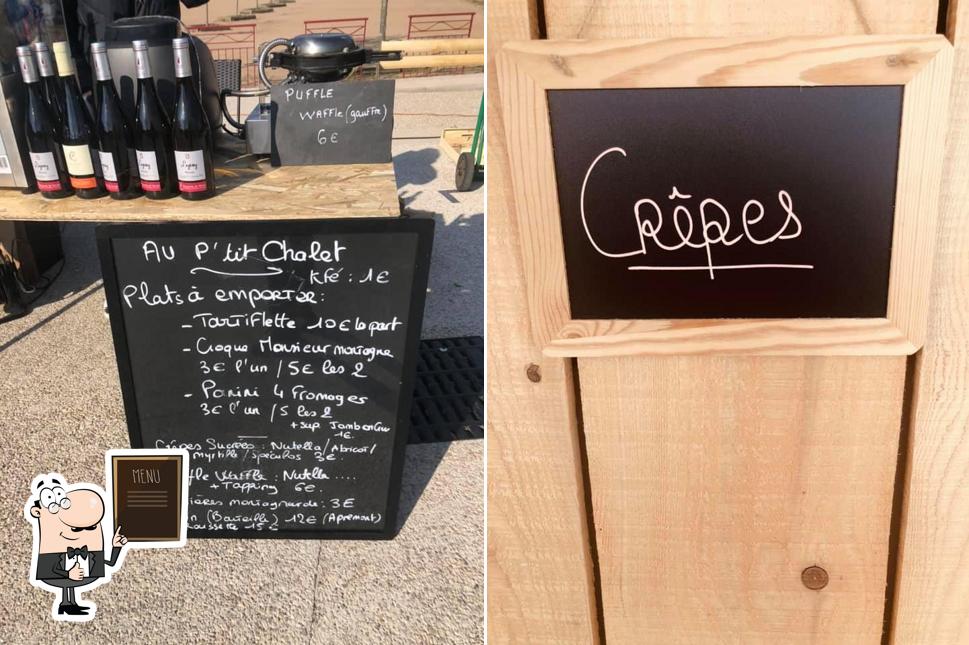 PUFFLE
WAFFLE (gauffre)
6€
AU P'tit Chalet
Kfé : 1€
Plats à emporter :
- Tartiflette 10€ la part
- Croque Monsieur montagne
3€ l'un / 5€ les 2
- Panini 4 Fromages
3€ l'un / 5 les 2
+ sup Jambon Cru
1€.
Crêpes Sucrées : Nutella / Abricot /
myrtille / spéculos 3€.
fle Waffle : Nutella ....
+ Tapping 6€.
ières montagnarde : 3€
n (Bouteille) 12€ (Apremont)
oussette 15€
MENU
Crêpes